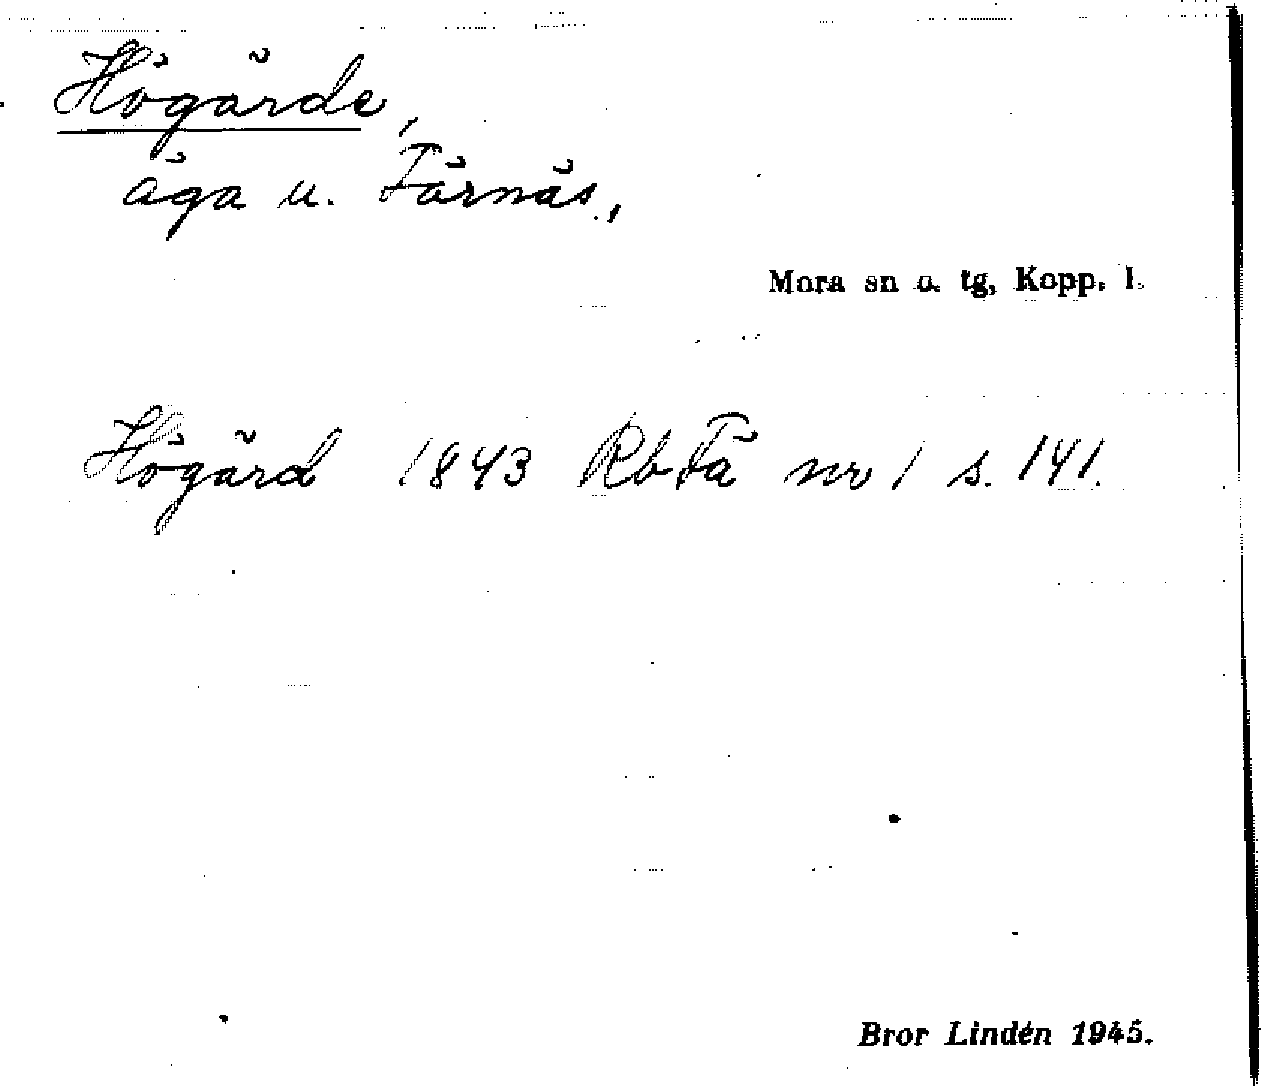 Högärde,
äga u. Färnäs.,
Mora sn o. tg, Kopp. l.
Högärd 1843 RbFä nr 1 s. 141.
Bror Lindén 1945.